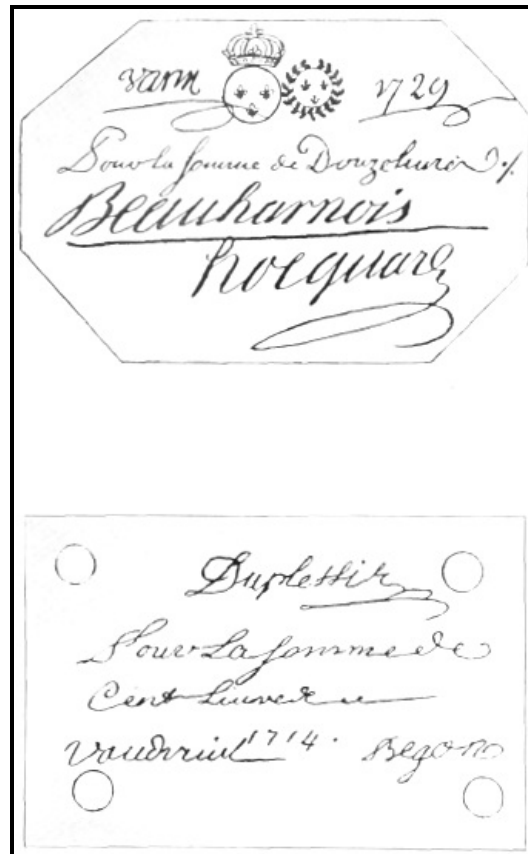 varin 1729
Pour la somme de Douze livres
Beauharnois
hocquart
Duplessis
Pour La somme de
Cent Livres
Vaudreuil 1714. Begon